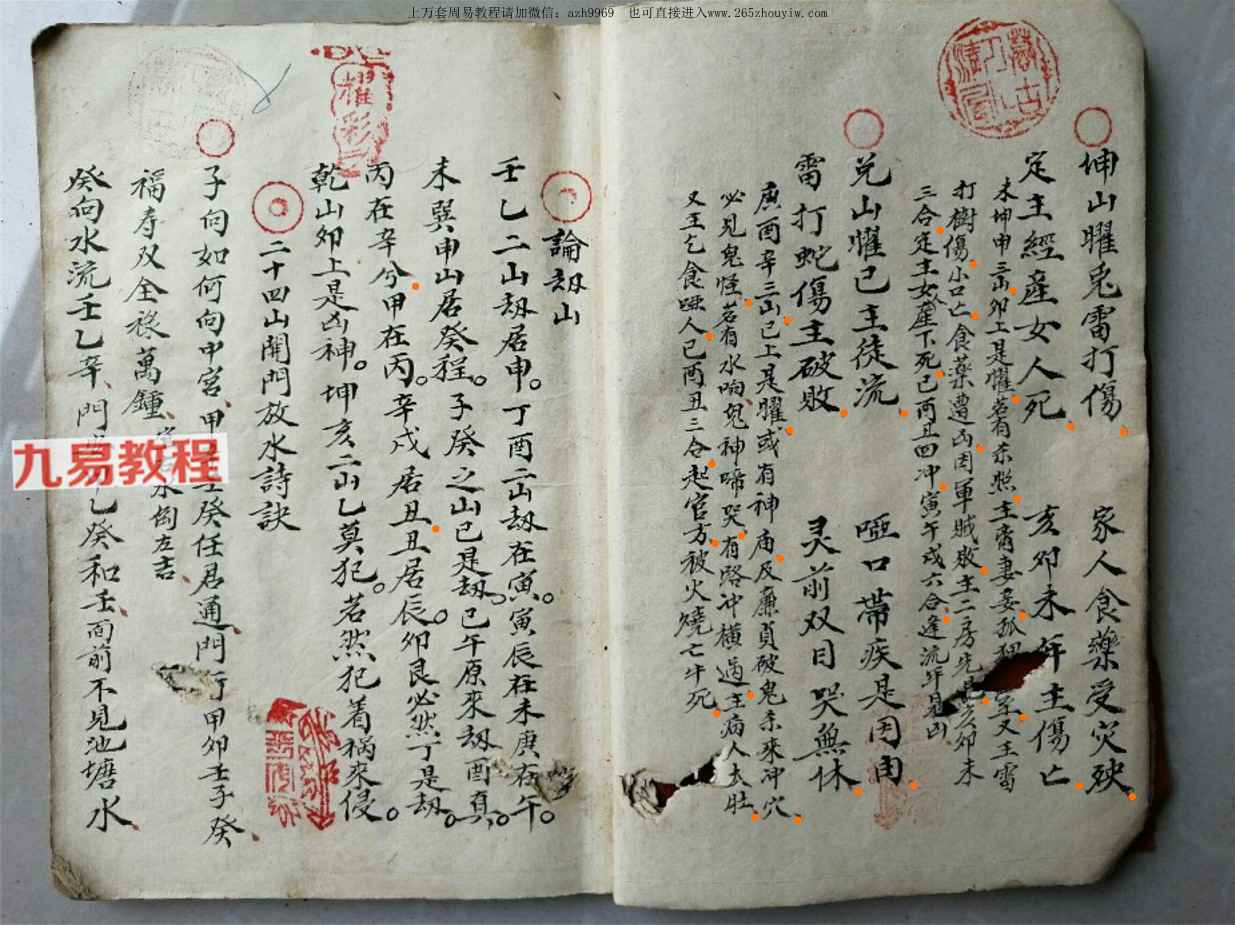 上万套周易教程请加微信：azh9969 也可直接进入www.265zhouyiw.com
坤山曜兎雷打傷 家人食藥受災殃
定主經産女人死 亥卯未年主傷亡
未坤申三山卯上是曜若有来照主肖妻妾孤 又主雷
打樹傷小口亡食藥遭凶囚軍賊敗主二房先 亥卯未
三合定主女人産下死巳酉丑四冲寅午戌六合逢流年見凶
兑山曜巳主徒流 啞口帶疾是因由
雷打蛇傷主破敗 灵前双目哭無休
庚酉辛三山巳上是曜或有神庙及廉貞破鬼来來冲穴
必見鬼怪若有水响鬼神啼哭有路冲横過主病人大肚
又主乞食啞人巳酉丑三合起官方被火燒七牛死
論刼山
壬乙二山刼居申丁酉二山刼在寅寅辰在未庚在午
未巽申山居癸程子癸之山巳是刼巳午原來刼酉真
丙在辛兮甲在丙辛戌居丑丑居辰卯艮必然丁是刼
乾山卯上是凶神坤亥二山乙莫犯若然犯着祸來侵
二十四山開門放水詩訣
子向如何向中宫甲 壬癸任君通門行甲卯壬子癸
福寿双全禄萬鍾 水倒左吉
癸向水流壬乙辛門 乙癸和壬面前不見池塘水
九易教程